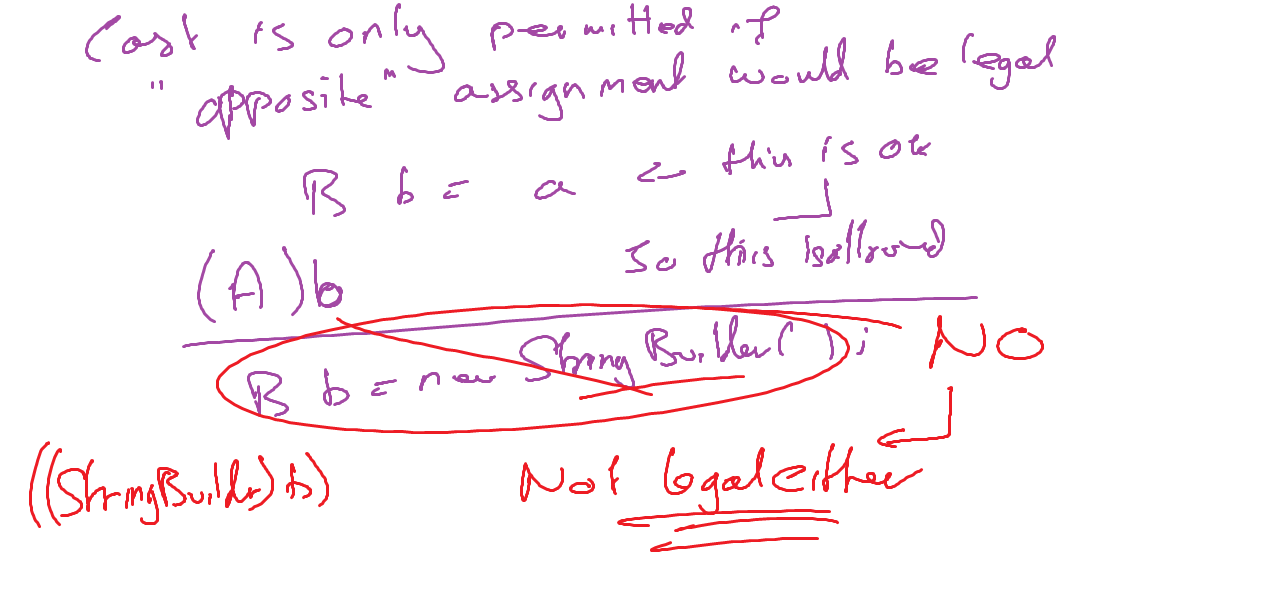 Cast is only permitted if
"opposite" assignment would be legal
B b = a ← this is ok
so this is allowed
(A) b
B b = new StringBuilder( ); NO
((StringBuilder) b) Not legal either